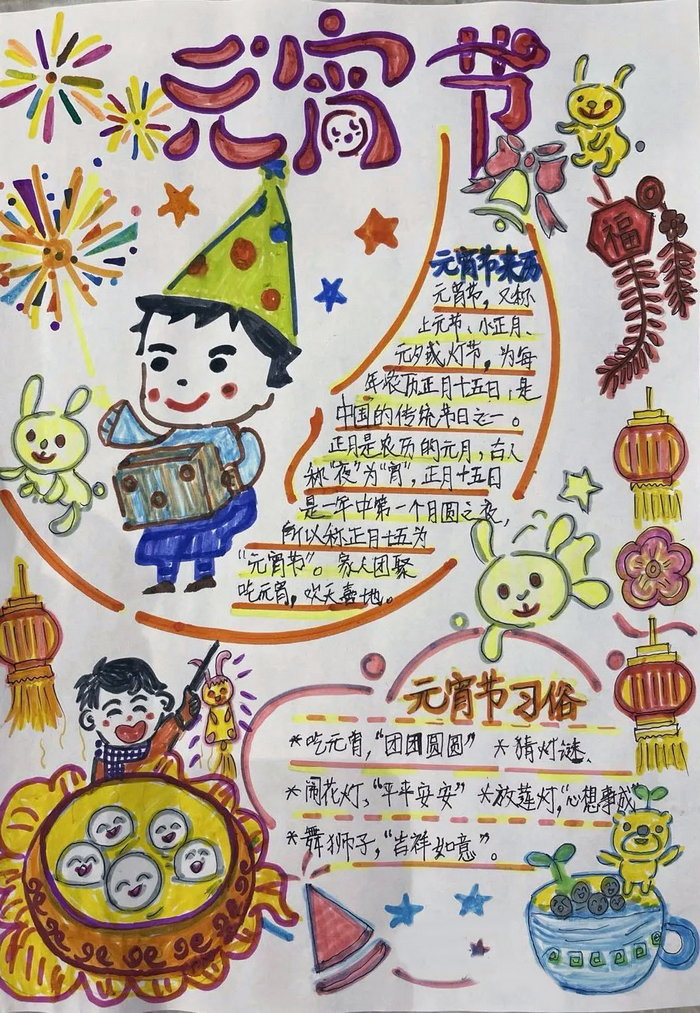 元宵节
福
元宵节来历
元宵节，又称
上元节、小正月、
元夕或灯节，为每
年农历正月十五日，是
中国的传统节日之一。
正月是农历的元月，古人
称“夜”为“宵”，正月十五日
是一年中第一个月圆之夜，
所以称正月十五为
“元宵节”。家人团聚
吃元宵，欢天喜地。
元宵节习俗
*吃元宵，“团团圆圆” *猜灯谜、
*闹花灯，“平平安安” *放莲灯，“心想事成
*舞狮子，“吉祥如意”。